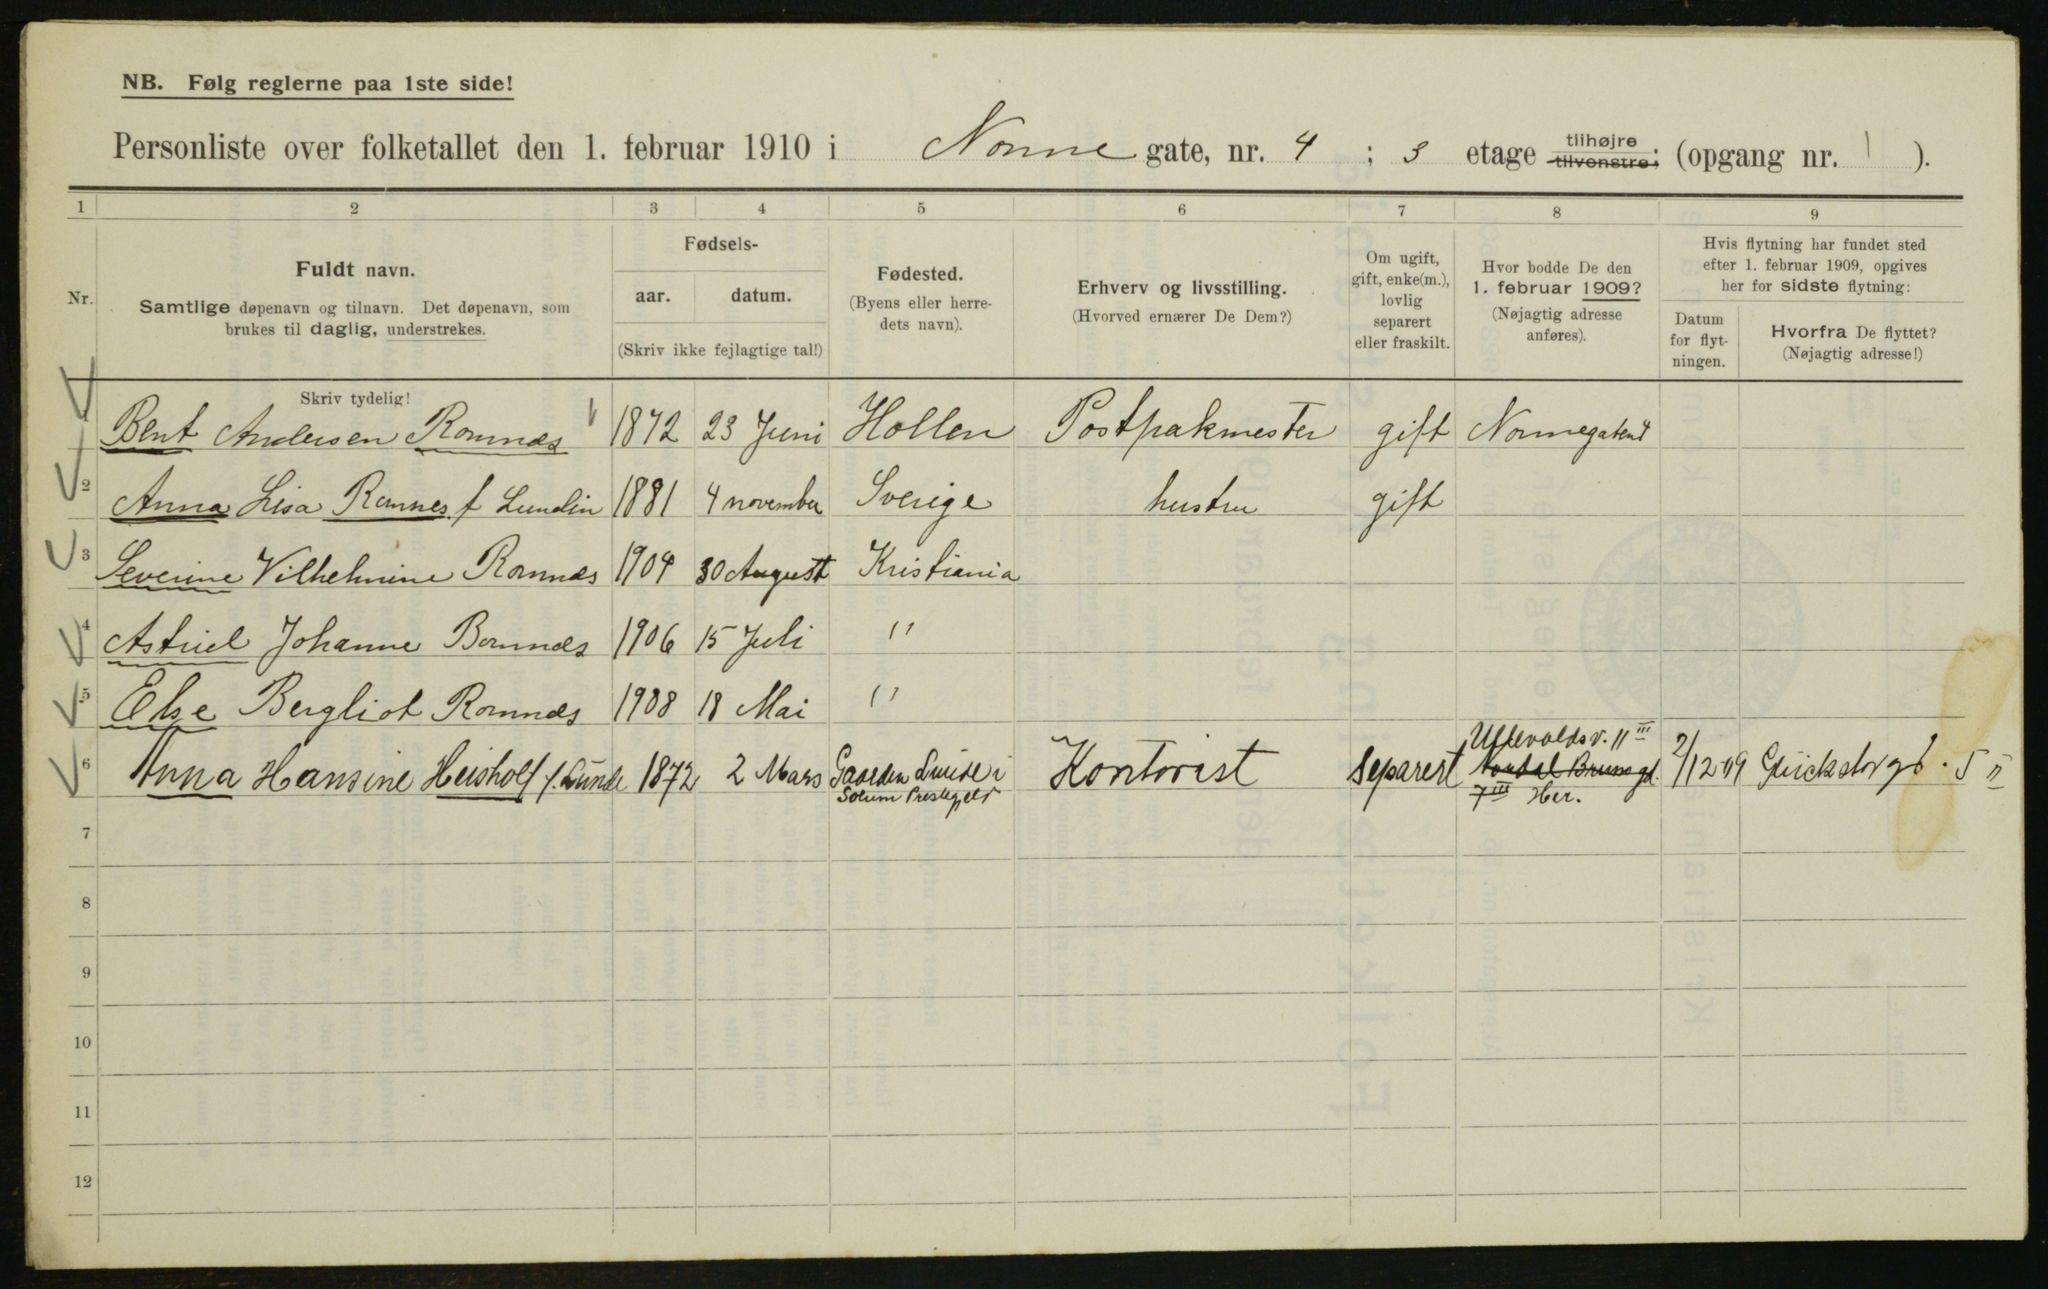 NB. Følg reglerne paa 1ste side!
Personliste over folketallet den 1. februar 1910 i Nonne gate, nr. 4 ; 3 etage tilhøjre tilvenstre; (opgang nr. 1 ).
1 2 3 4 5 6 7 8 9
Nr.
Fuldt navn.
Samtlige døpenavn og tilnavn. Det døpenavn, som
brukes til daglig, understrekes.
Fødsels-
aar. datum.
(Skriv ikke fejlagtige tal!)
Fødested.
(Byens eller herre-
dets navn).
Erhverv og livsstilling.
(Hvorved ernærer De Dem?)
Om ugift,
gift, enke(m.),
lovlig
separert
eller fraskilt.
Hvor bodde De den
1. februar 1909?
(Nøjagtig adresse
anføres).
Hvis flytning har fundet sted
efter 1. februar 1909, opgives
her for sidste flytning:
Datum
for flyt-
ningen.
Hvorfra De flyttet?
(Nøjagtig adresse!)
Skriv tydelig!
1 Bent Andersen Romnæs 1872 23 Juni Hollen Postpakmester gift Nonnegaten 4
2 Anna Lisa Romnes f Lundin 1881 4 november Sverige hustru gift
3 Severine Vilhelmine Romnæs 1904 30 August Kristiania
4 Astrid Johanne Romnæs 1906 15 Juli "
5 Else Bergliot Romnæs 1908 18 Mai "
6 Anna Hansine Heisholt f. Lunde 1872 2 Mars Gaarden Lunde i Solum Prestegjeld Kontorist Separert Ullevoldsv. 11 III Nordal Brunsgd. 7 III Her. 2/12 09 Glückstadgd. 5 II
7
8
9
10
11
12